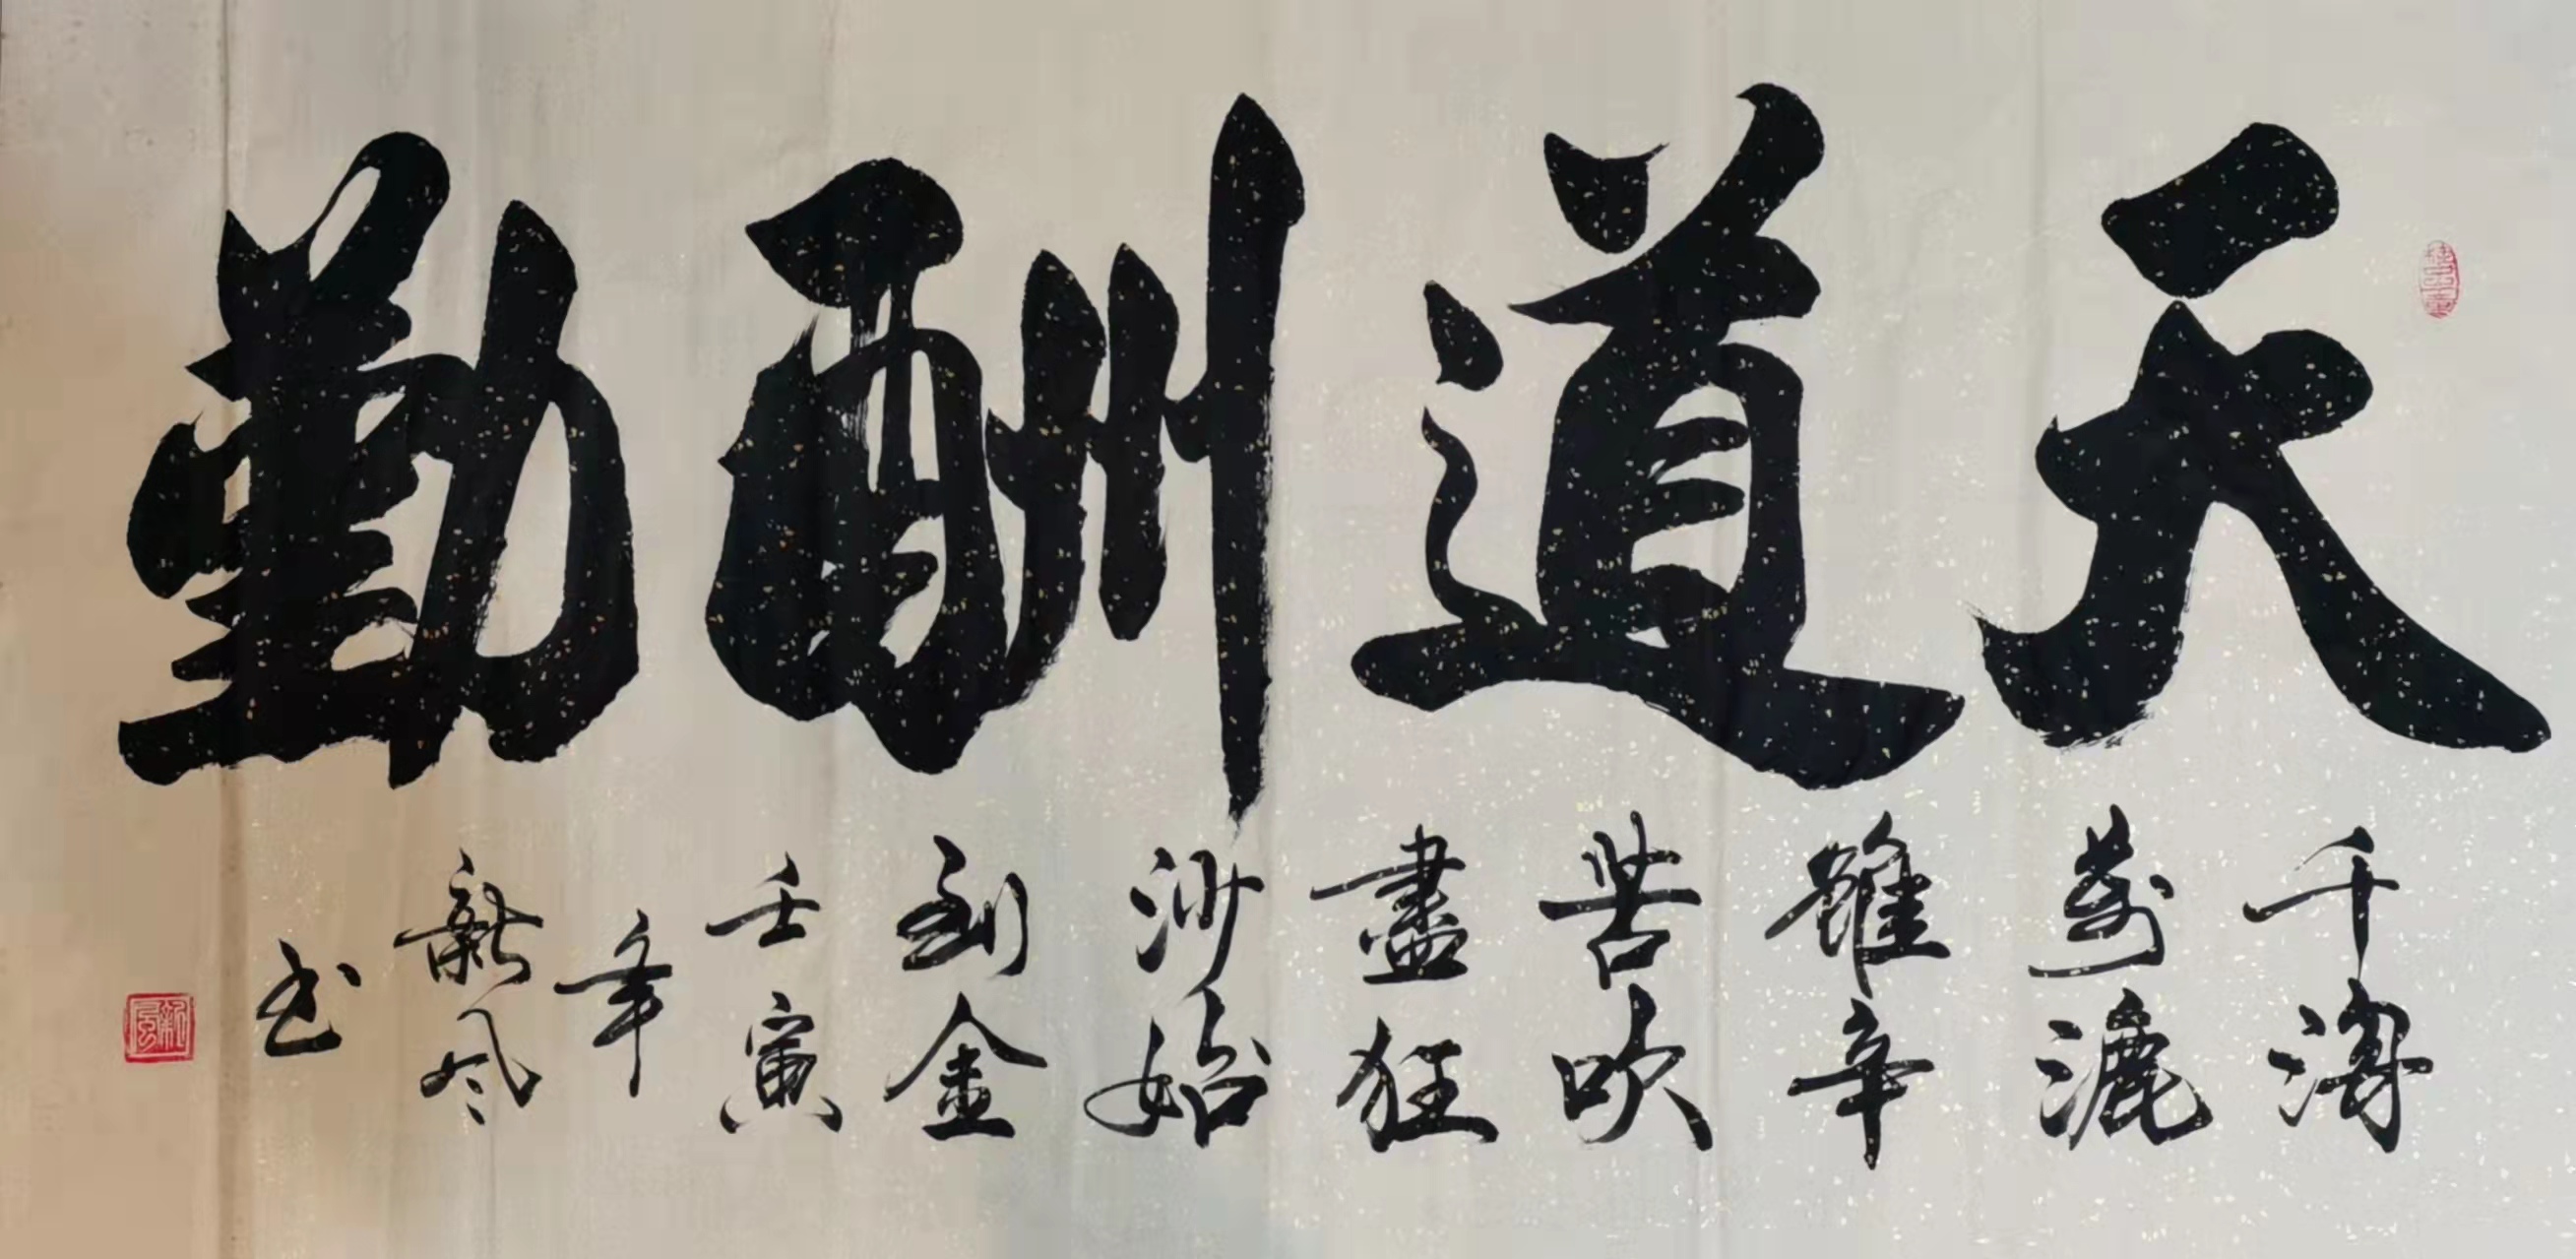 天道酬勤
千淘
萬漉
雖辛
苦吹
盡狂
沙始
到金
壬寅
年
新風
书
新風